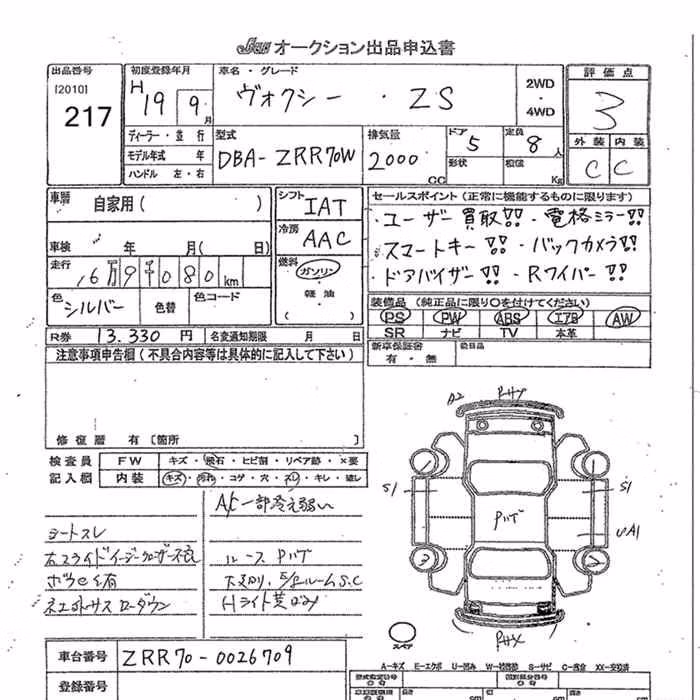 JAA オークション出品申込書
出品番号
[2010]
217
初度登録年月
H19 9月
車名・グレード
ヴォクシー・ZS
2WD
・
4WD
評価点
3
外装 内装
C C
ディーラー・並行
モデル年式 年
ハンドル 左・右
型式
DBA-ZRR70W
排気量
2000 CC
ドア 5
形状
定員 8人
積信 Kg
車歴
自家用( )
車検 年 月( 日)
走行 16万9千080km
色 シルバー
色替
色コード
シフト IAT
冷房 AAC
燃料 ガソリン
・
軽油
( )
セールスポイント(正常に機能するものに限ります)
・ユーザー買取!!・電格ミラー!!
・スマートキー!!・バックカメラ!!
・ドアバイザー!!・Rワイパー!!
装備品(純正品に限り○を付けてください)
PS PW ABS エアB AW
SR ナビ TV 本革
R券 13.330円
名変通知期限 月 日
新車保証書
有・無
後日品
注意事項申告欄(不具合内容等は具体的に記入して下さい)
修復歴 有〔箇所 〕
検査員
記入欄
FW キズ・飛石・ヒビ割・リペア跡・×要
内装 キズ・汚れ・コゲ・穴・スレ・キレ・破レ
A/C一部冷え弱い
シートスレ
右スライドイージークローザー不良
ルースPバゲ
Hライト黄ばみ
ローダウン
A2
S1
S1
A1
3
3
スペア
車台番号 ZRR70-0026709
登録番号
A-キズ E-エクボ U-凹み S-サビ C-腐食 XX-交換済